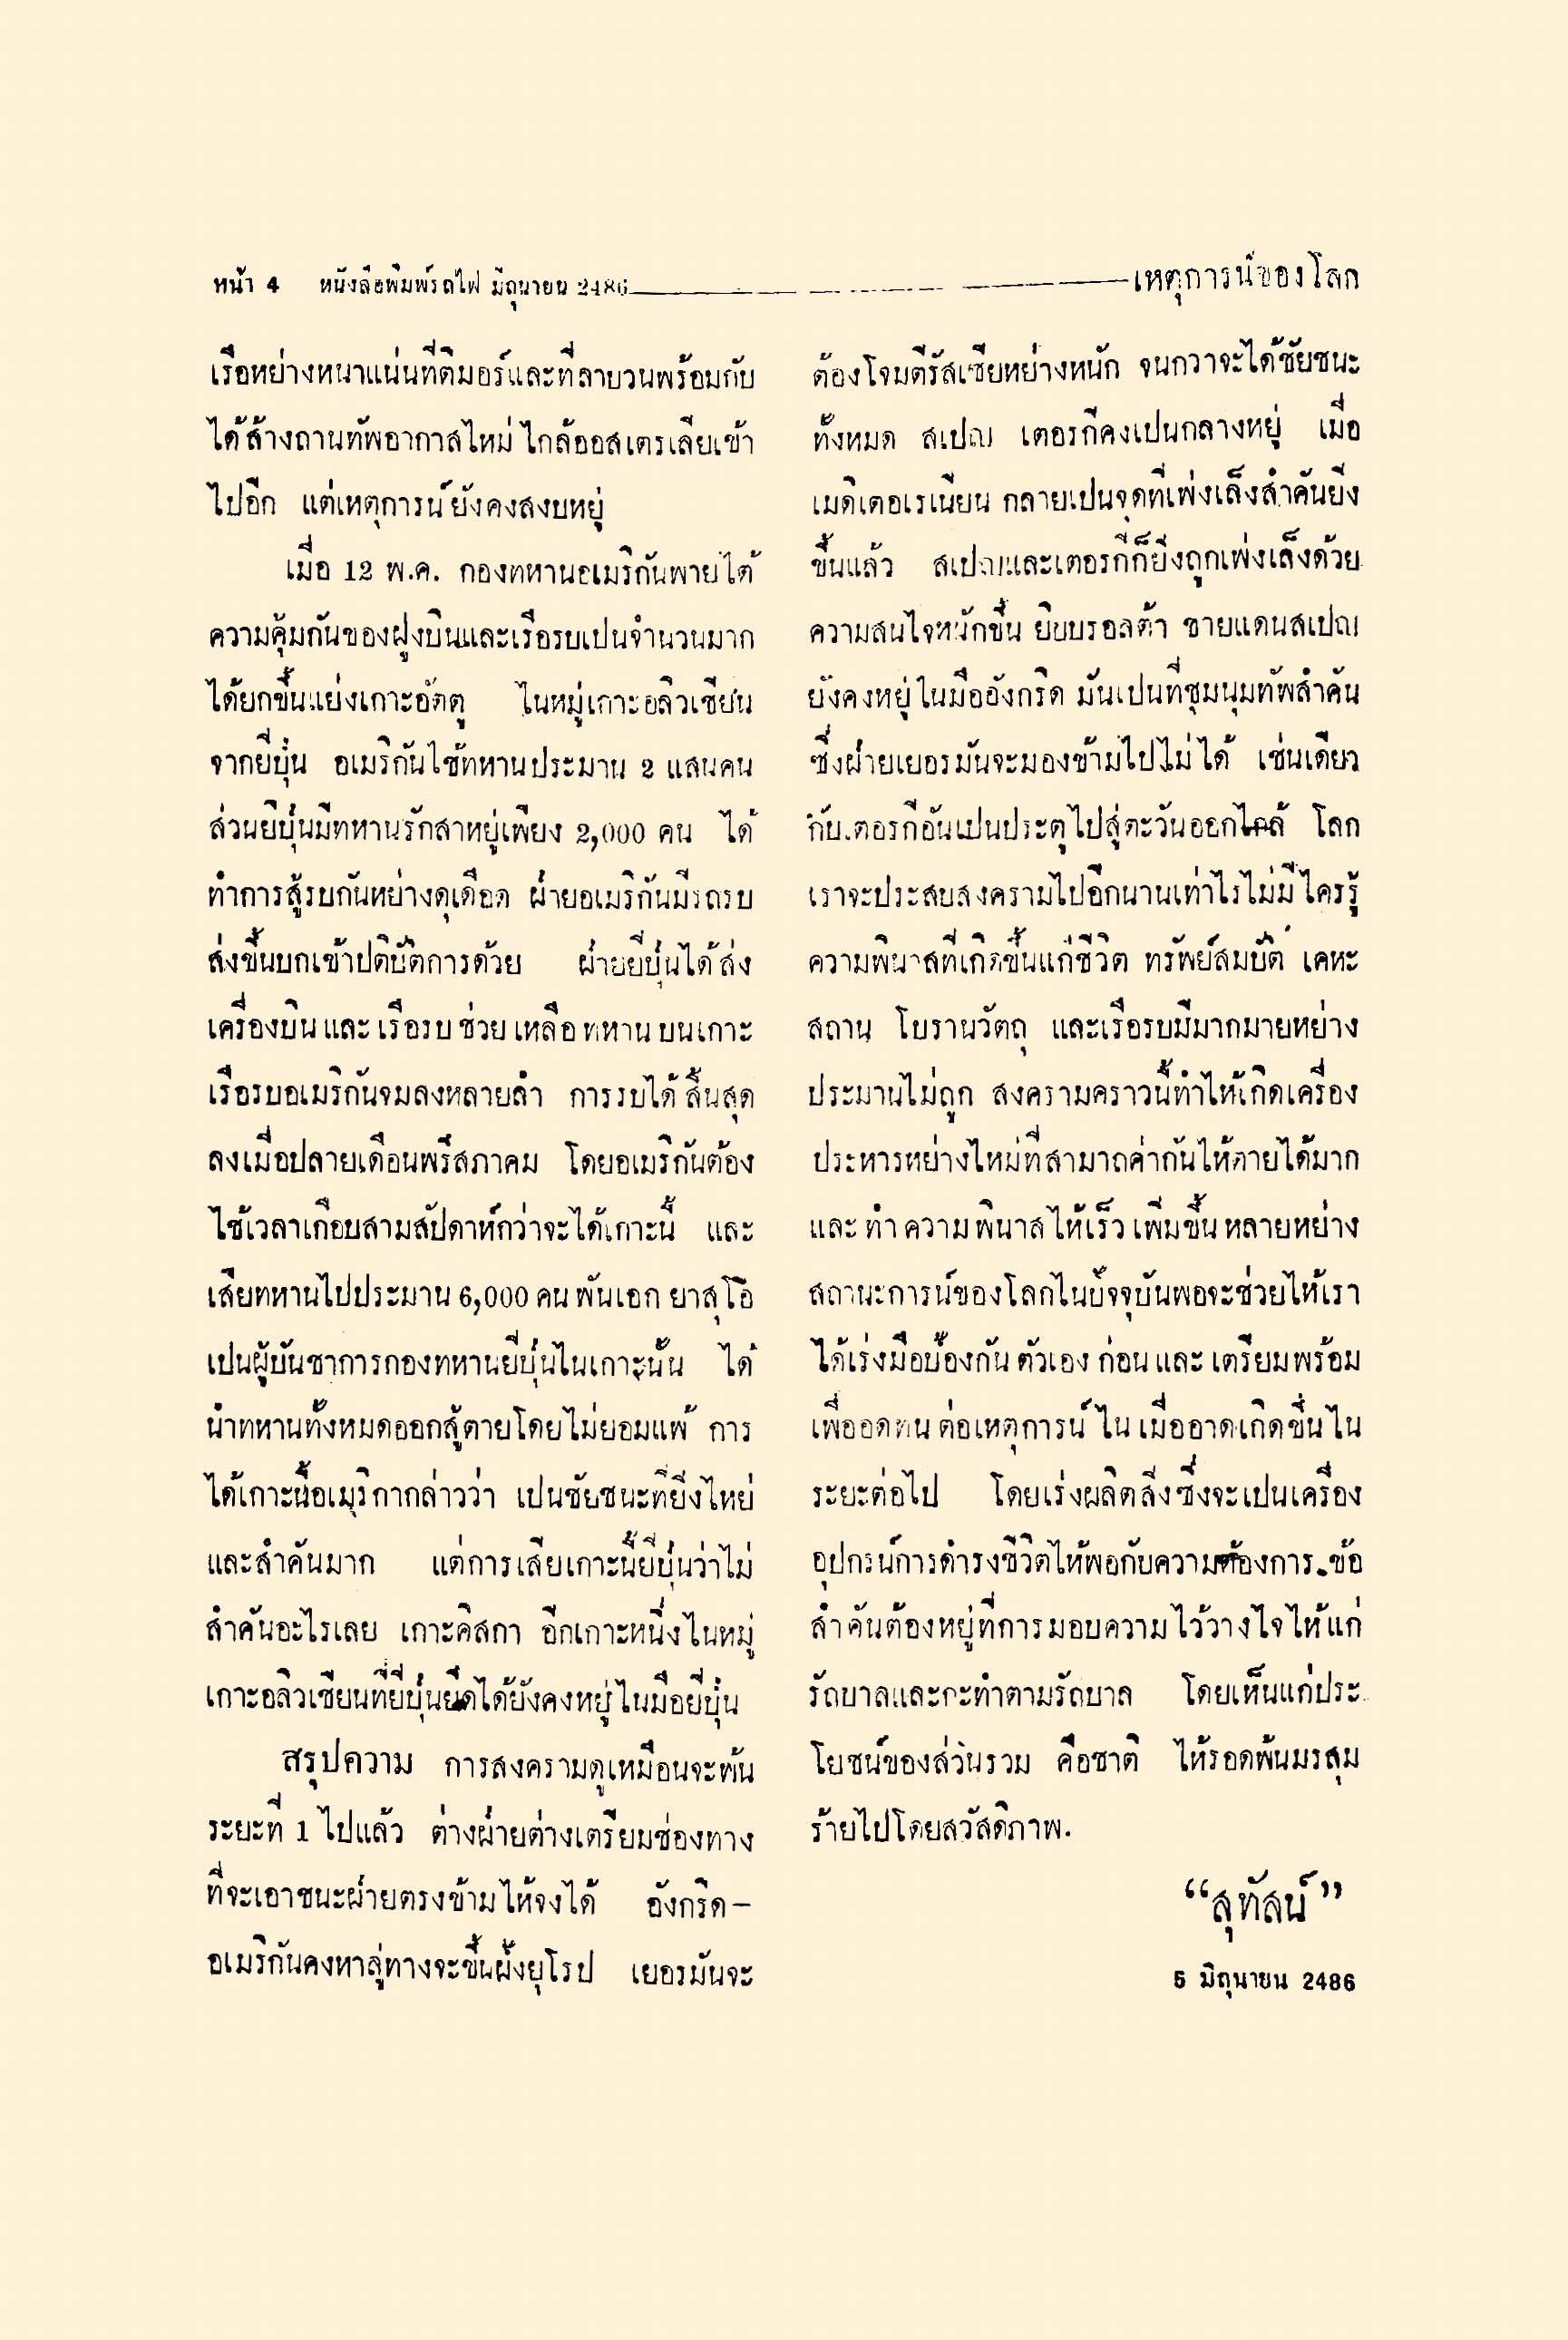 หน้า 4 หนังสือพิมพ์รถไฟ มิถุนายน 2486
เหตุการน์ของโลก
เรือหย่างหนาแน่นที่ติมอร์และที่ลาบวนพร้อมกับ
ได้ส้างถานทัพอากาสไหม่ไกล้ออสเตรเลียเข้า
ไปอีก แต่เหตุการน์ยังคงสงบหยู่
เมื่อ 12 พ.ค. กองทหานอเมริกันพายไต้
ความคุ้มกันของฝูงบินและเรือรบเปนจำนวนมาก
ได้ยกขึ้นแย่งเกาะอัตตู ไนหมู่เกาะอลิวเชียน
จากยี่ปุ่น อเมริกันไช้ทหานประมาน 2 แสนคน
ส่วนยี่ปุ่นมีทหานรักสาหยู่เพียง 2,000 คน ได้
ทำการสู้รบกันหย่างดุเดือด ฝ่ายอเมริกันมีรถรบ
ส่งขึ้นบกเข้าปติบัติการด้วย ฝ่ายยี่ปุ่นได้ส่ง
เครื่องบินและเรือรบช่วยเหลือทหานบนเกาะ
เรือรบอเมริกันจมลงหลายลำ การรบได้สิ้นสุด
ลงเมื่อปลายเดือนพรึสภาคม โดยอเมริกันต้อง
ไช้เวลาเกือบสามสัปดาห์กว่าจะได้เกาะนี้ และ
เสียทหานไปประมาน 6,000 คน พันเอก ยาสุโอ
เปนผู้บันชาการกองทหานยี่ปุ่นไนเกาะนั้น ได้
นำทหานทั้งหมดออกสู้ตายโดยไม่ยอมแพ้ การ
ได้เกาะนี้อเมริกากล่าวว่า เปนชัยชนะที่ยิ่งไหย่
และสำคันมาก แต่การเสียเกาะนี้ยี่ปุ่นว่าไม่
สำคันอะไรเลย เกาะคิสกา อีกเกาะหนึ่งไนหมู่
เกาะอลิวเชียนที่ยี่ปุ่นยึดได้ยังคงหยู่ไนมือยี่ปุ่น
สรุปความ การสงครามดูเหมือนจะพ้น
ระยะที่ 1 ไปแล้ว ต่างฝ่ายต่างเตรียมช่องทาง
ที่จะเอาชนะฝ่ายตรงข้ามไห้จงได้ อังกริด—
อเมริกันคงหาลู่ทางจะขึ้นฝั่งยุโรป เยอรมันจะ
ต้องโจมตีรัสเซียหย่างหนัก จนกวาจะได้ชัยชนะ
ทั้งหมด สเปญ เตอรกีคงเปนกลางหยู่ เมื่อ
เมดิเตอเรเนียน กลายเปนจุดที่เพ่งเล็งสำคันยิ่ง
ขึ้นแล้ว สเปญและเตอรกีก็ยิ่งถูกเพ่งเล็งด้วย
ความสนไจหนักขึ้น ยิบบรอลต้า ชายแดนสเปญ
ยังคงหยู่ไนมืออังกริด มันเปนที่ชุมนุมทัพสำคัน
ซึ่งฝ่ายเยอรมันจะมองข้ามไปไม่ได้ เช่นเดียว
กับเตอรกีอันเปนประตูไปสู่ตะวันออกไกล้ โลก
เราจะประสบสงครามไปอีกนานเท่าไรไม่มีไครรู้
ความพินาสที่เกิดขึ้นแก่ชีวิต ทรัพย์สมบัติ เคหะ
สถาน โบรานวัตถุ และเรือรบมีมากมายหย่าง
ประมานไม่ถูก สงครามคราวนี้ทำไห้เกิดเครื่อง
ประหารหย่างไหม่ที่สามาถค่ากันไห้ตายได้มาก
และทำความพินาสไห้เร็วเพิ่มขึ้นหลายหย่าง
สถานะการน์ของโลกไนปัจจุบันพอจะช่วยไห้เรา
ได้เร่งมือป้องกันตัวเองก่อนและเตรียมพร้อม
เพื่ออดทนต่อเหตุการน์ไนเมื่ออาดเกิดขึ้นไน
ระยะต่อไป โดยเร่งผลิตสิ่งซึ่งจะเปนเครื่อง
อุปกรน์การดำรงชีวิตไห้พอกับความต้องการ.ข้อ
สำคันต้องหยู่ที่การมอบความไว้วางไจไห้แก่
รัถบาลและกะทำตามรัถบาล โดยเห็นแก่ประ
โยชน์ของส่วนรวม คือชาติ ไห้รอดพ้นมรสุม
ร้ายไปโดยสวัสดิภาพ.
“สุทัสน์”
5 มิถุนายน 2486